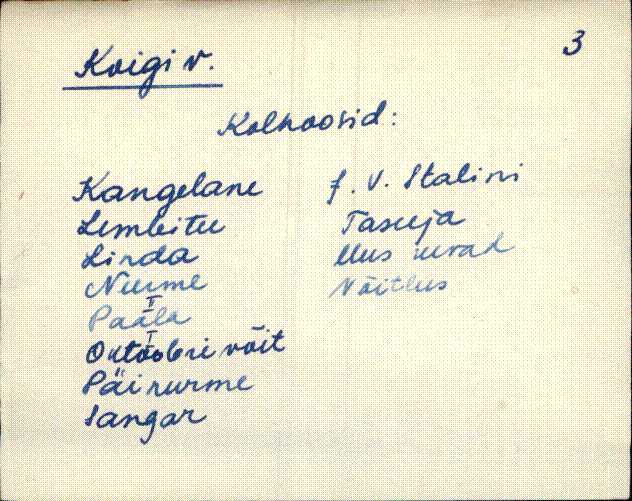 3
Koigi v.
Kolhoosid:
Kangelane
Lembitu
Linda
Nurme
II
Paala
I
Oktoobri võit
Päinurme
Sangar
J. V. Stalini
Tasuja
Uus
Võitlus